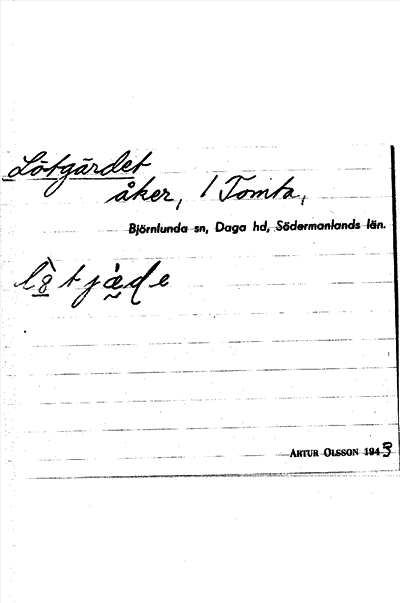 Lötgärdet
åker, 1 Tomta,
Björnlunda sn, Daga hd, Södermanlands län.
ARTUR OLSSON 1943